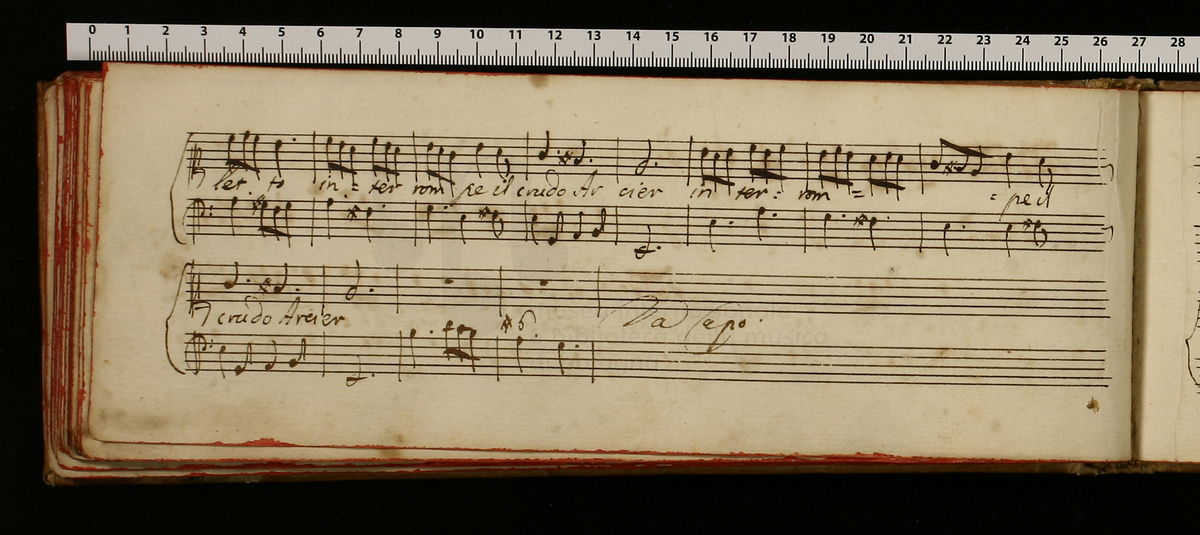 0 1 2 3 4 5 6 7 8 9 10 11 12 13 14 15 16 17 18 19 20 21 22 23 24 25 26 27 28
let to in = ter rom pe il crudo Ar cier in ter = rom = = pe il
crudo Arcier
6
Da Capo.
musica